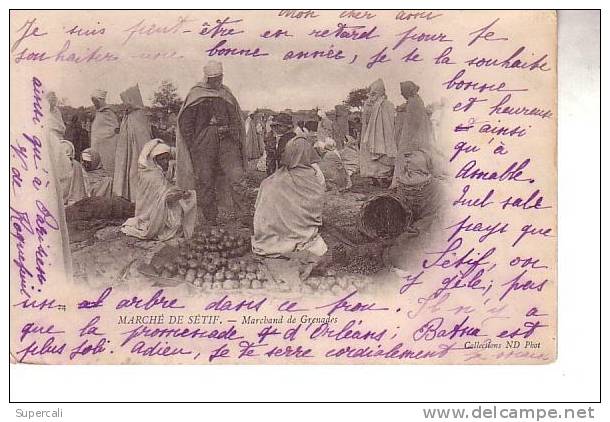 Mon cher ami
Je suis peut-être en retard pour te
souhaiter une bonne année, je te la souhaite
bonne
et heureuse
ainsi
qu'à
Amable.
Quel sale
pays que
Sétif, on
y gèle; pas
un arbre dans ce trou. Il n'y a
que la promenade d'Orléans; Batna est
plus joli. Adieu, je te serre cordialement la main
ainsi qu'à
24 MARCHÉ DE SÉTIF. — Marchand de Grenades
Collections ND Phot
Supercali
delcampe.net